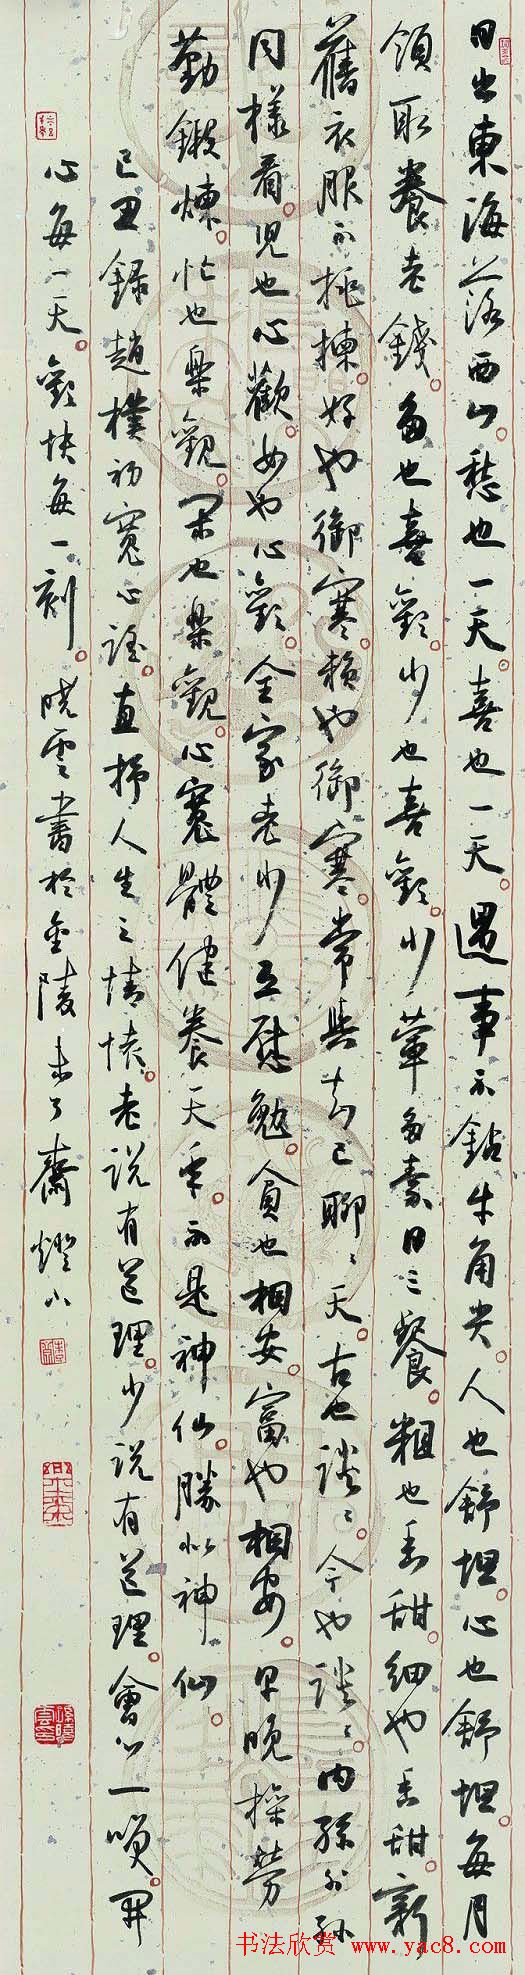 日出東海落西山愁也一天喜也一天遇事不鑽牛角尖人也舒坦心也舒坦每月
領取養老錢多也喜歡少也喜歡少葷多素日三餐粗也香甜細也香甜新
舊衣服不挑揀好也御寒賴也御寒常與知己聊聊天古也談談今也談談內孫外孫
同樣看兒也心歡女也心歡全家老少互慰勉貧也相安富也相安早晚操勞
勤鍛煉忙也樂觀閑也樂觀心寬體健養天年不是神仙勝似神仙
己丑錄趙樸初寬心謠直抒人生之情懷老說有道理少說有道理會心一笑開
心每一天歡快每一刻曉雲書於金陵未了齋燈下
书法欣赏 www.yac8.com